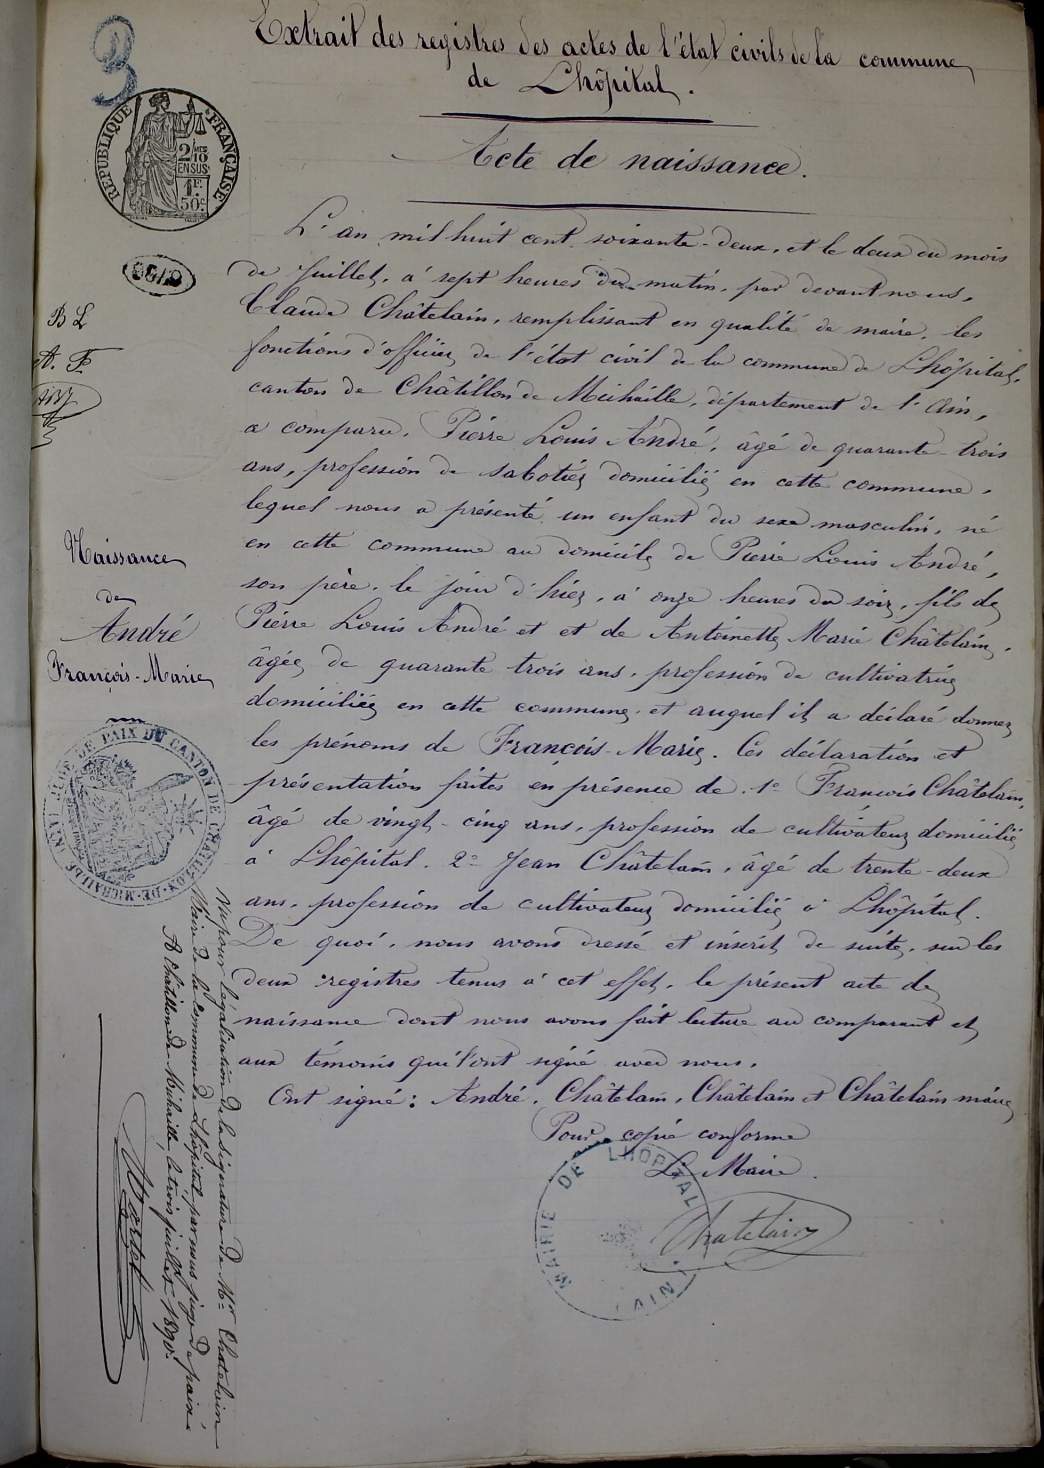 3
Extrait des registres des actes de l'état civils de la commune
de Lhôpital.
Acte de naissance.
REPUBLIQUE FRANÇAISE
2/10 EN SUS
1F. 50c.
L'an mil huit cent soixante-deux, et le deux du mois
de Juillet, à sept heures du matin, par devant nous,
Claude Châtelain, remplissant en qualité de maire, les
fonctions d'officier de l'état civil de la commune de Lhôpital,
canton de Châtillon de Michaille, département de l'Ain,
a comparu, Pierre Louis André, âgé de quarante-trois
ans, profession de sabotier domicilié en cette commune,
lequel nous a présenté un enfant du sexe masculin, né
en cette commune au domicile de Pierre Louis André,
son père, le jour d'hier, à onze heures du soir, fils de
Pierre Louis André et et de Antoinette Marie Châtelain,
âgée de quarante trois ans, profession de cultivatrice
domiciliée en cette commune, et auquel il a déclaré donner
les prénoms de François-Marie. Ces déclaration et
présentation faites en présence de 1º François Châtelain,
âgé de vingt-cinq ans, profession de cultivateur domicilié
à Lhôpital. 2º Jean Châtelain, âgé de trente-deux
ans, profession de cultivateur domicilié à Lhôpital.
De quoi, nous avons dressé et inscrit de suite, sur les
deux registres tenus à cet effet, le présent acte de
naissance dont nous avons fait lecture au comparant et
aux témoins qui l'ont signé avec nous.
Ont signé: André, Châtelain, Châtelain et Châtelain maire
Pour copie conforme
Le Maire.
Chatelain
MAIRIE DE LHOPITAL (AIN)
B L
A. F.
Naissance
de
André
François-Marie
JUGE DE PAIX DU CANTON DE CHATILLON-DE-MICHAILLE
Vu pour légalisation de la signature de Mr Chatelain
Maire de la Commune de Lhôpital, par nous juge de paix
A Châtillon de Michaille, le trois juillet 1890.